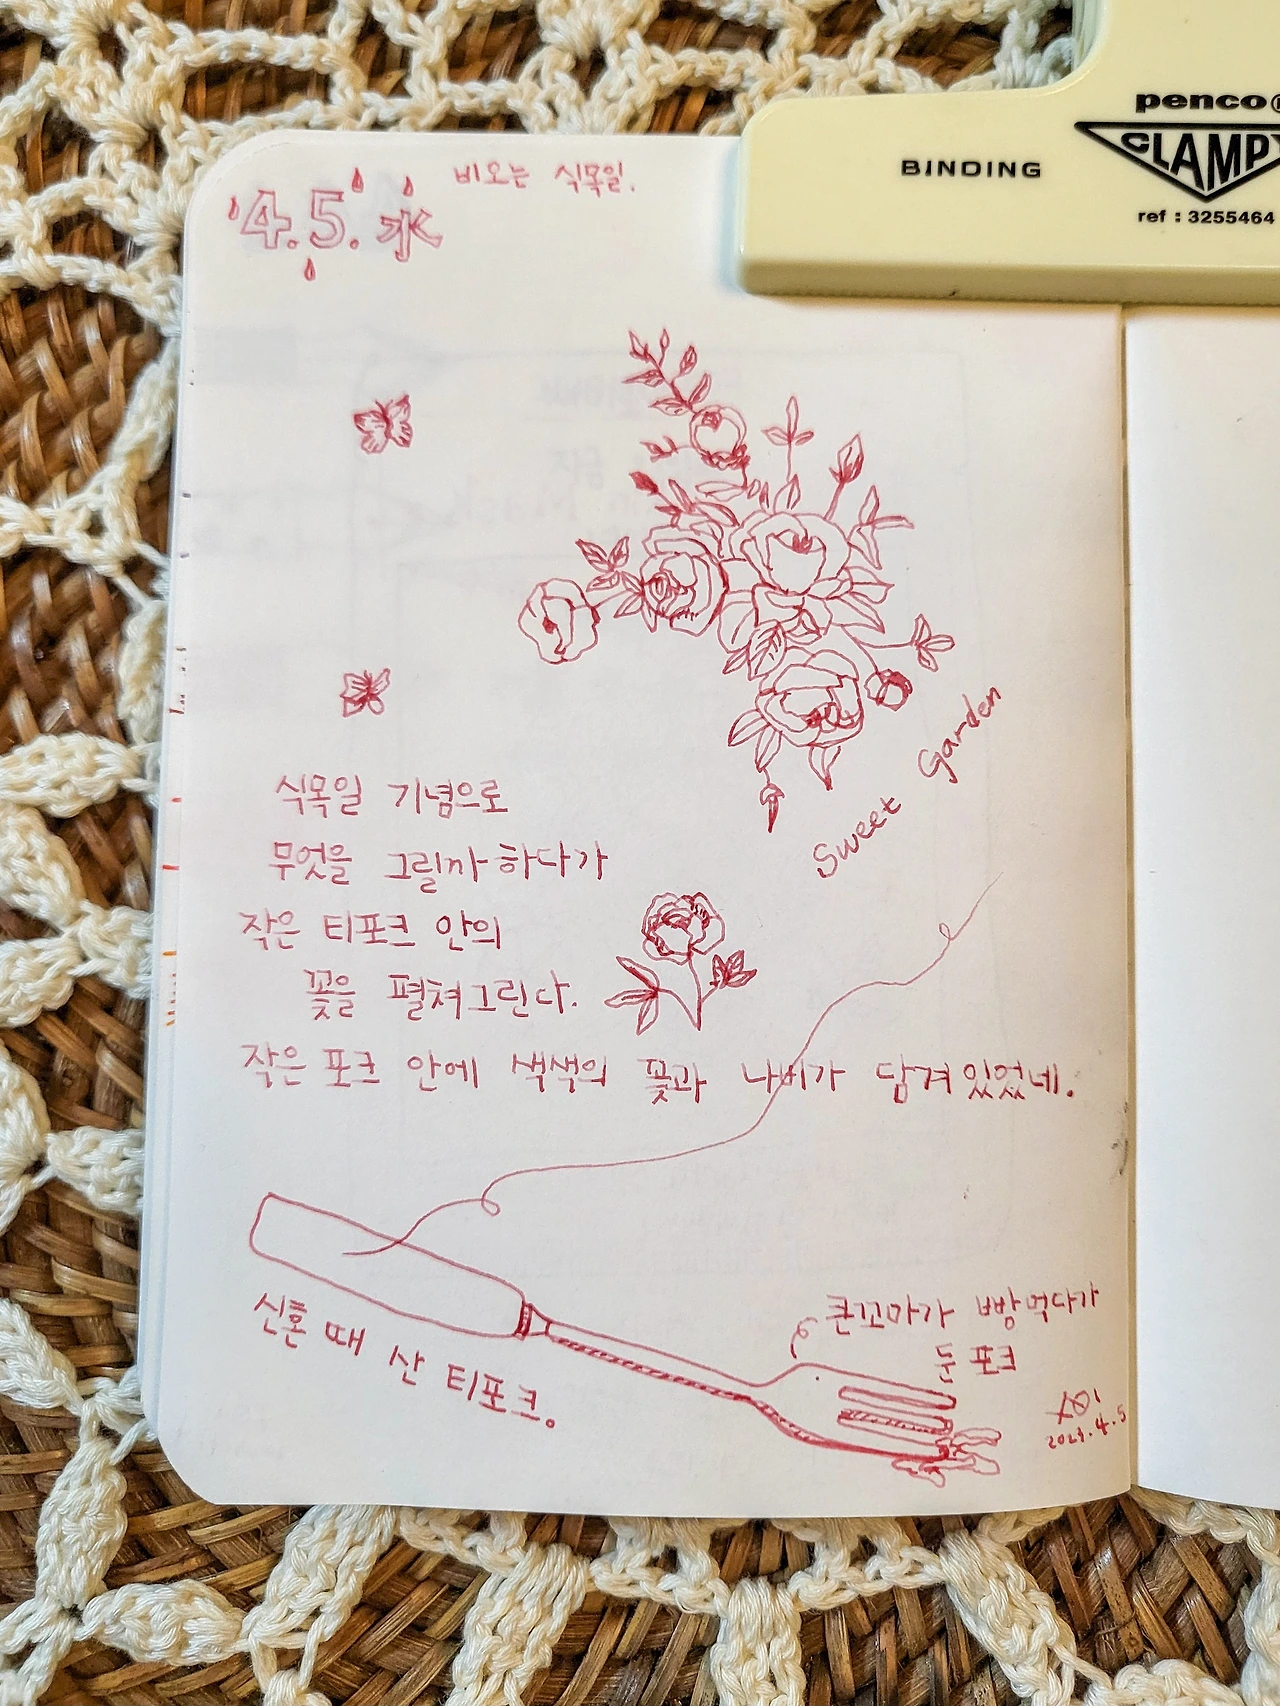 penco
CLAMPY
BINDING
ref : 3255464
4.5. 水
비오는 식목일.
Sweet Garden
식목일 기념으로
무엇을 그릴까 하다가
작은 티포크 안의
꽃을 펼쳐그린다.
작은 포크 안에 색색의 꽃과 나비가 담겨있었네.
신혼 때 산 티포크.
큰꼬마가 빵먹다가
둔 포크